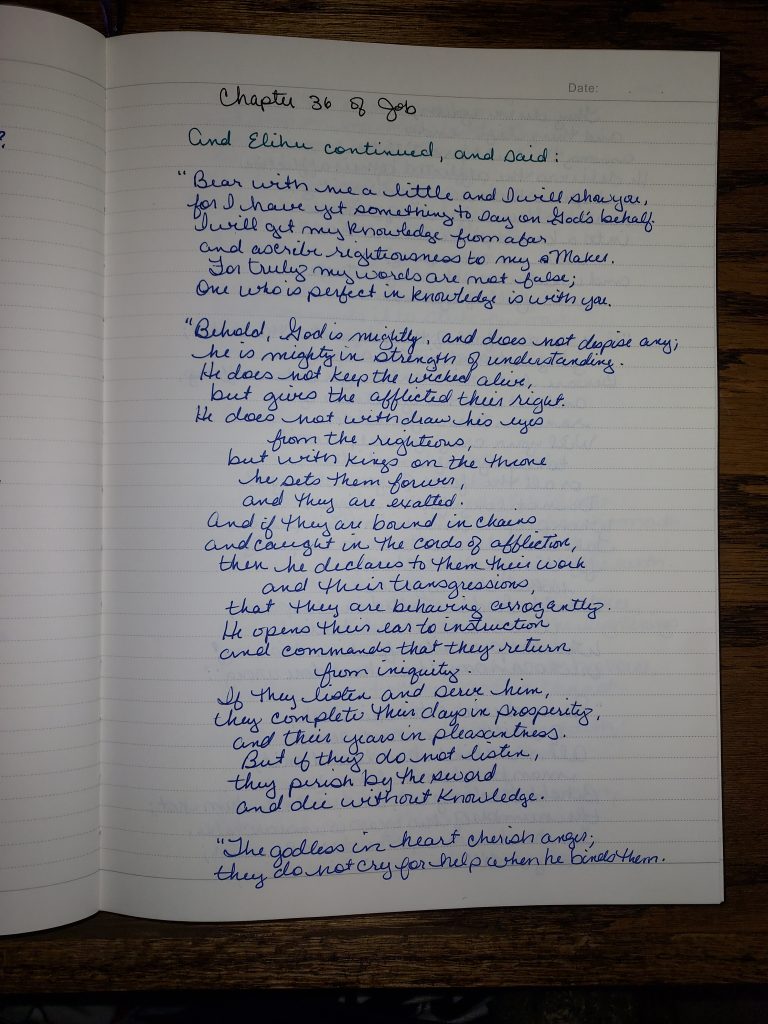 Date:
Chapter 36 of Job
And Elihu continued, and said:
"Bear with me a little and I will show you,
for I have yet something to say on God's behalf.
I will get my knowledge from afar
and ascribe righteousness to my Maker.
For truly my words are not false;
One who is perfect in knowledge is with you.
"Behold, God is mightly, and does not dispise any;
he is mighty in strength of understanding.
He does not keep the wicked alive,
but gives the afflicted their right.
He does not withdraw his eyes
from the righteous,
but with kings on the throne
he sets them forever,
and they are exalted.
And if they are bound in chains
and caught in the cords of affliction,
then he declares to them their work
and their transgressions,
that they are behaving arrogantly.
He opens their ear to instruction
and commands that they return
from iniquity.
If they listen and serve him,
they complete their days in prosperity,
and their years in pleasantness.
But if they do not listen,
they perish by the sword
and die without knowledge.
"The godless in heart cherish anger;
they do not cry for help when he binds them.